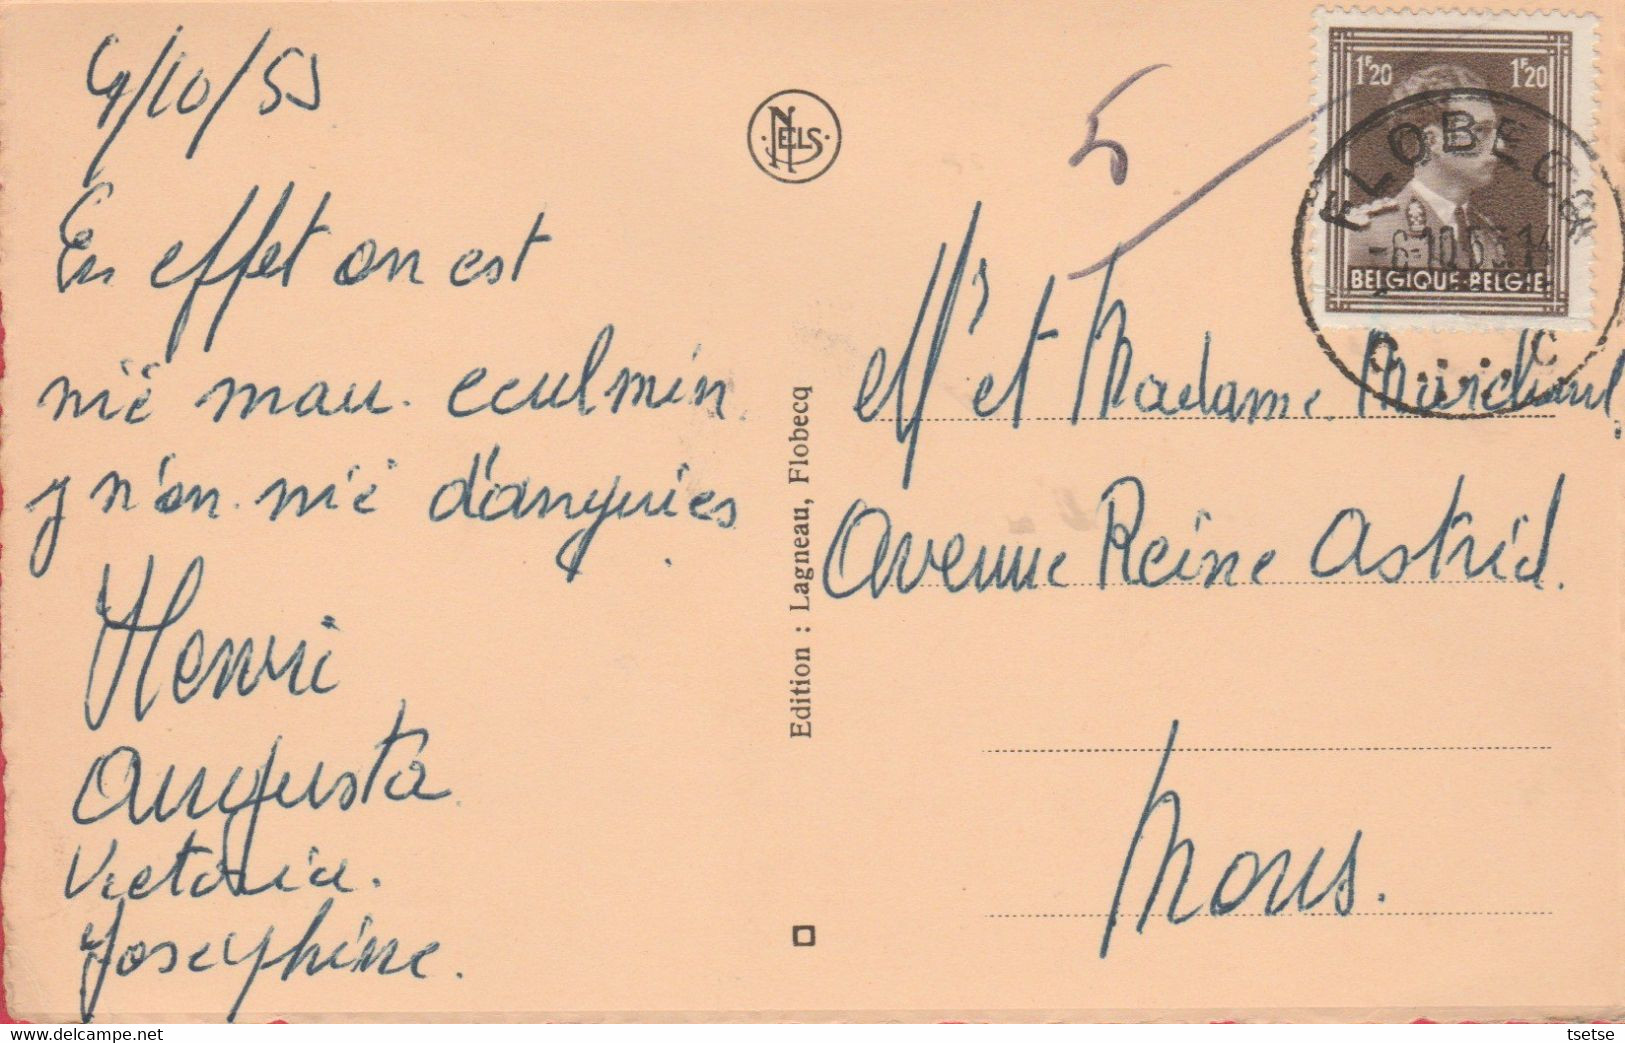 4/10/53
En effet on est
nié mau. eculmin
y n'on nié d'anguies
Henri
Augusta
Victoria.
Josephine.
NELS
Edition : Lagneau, Flobecq
5
1F20 1F20
BELGIQUE-BELGIE
FLOBECQ
-6-10.53.14
C....C
Mr et Madame Marchant
Avenue Reine Astrid.
Mons.
tsetse